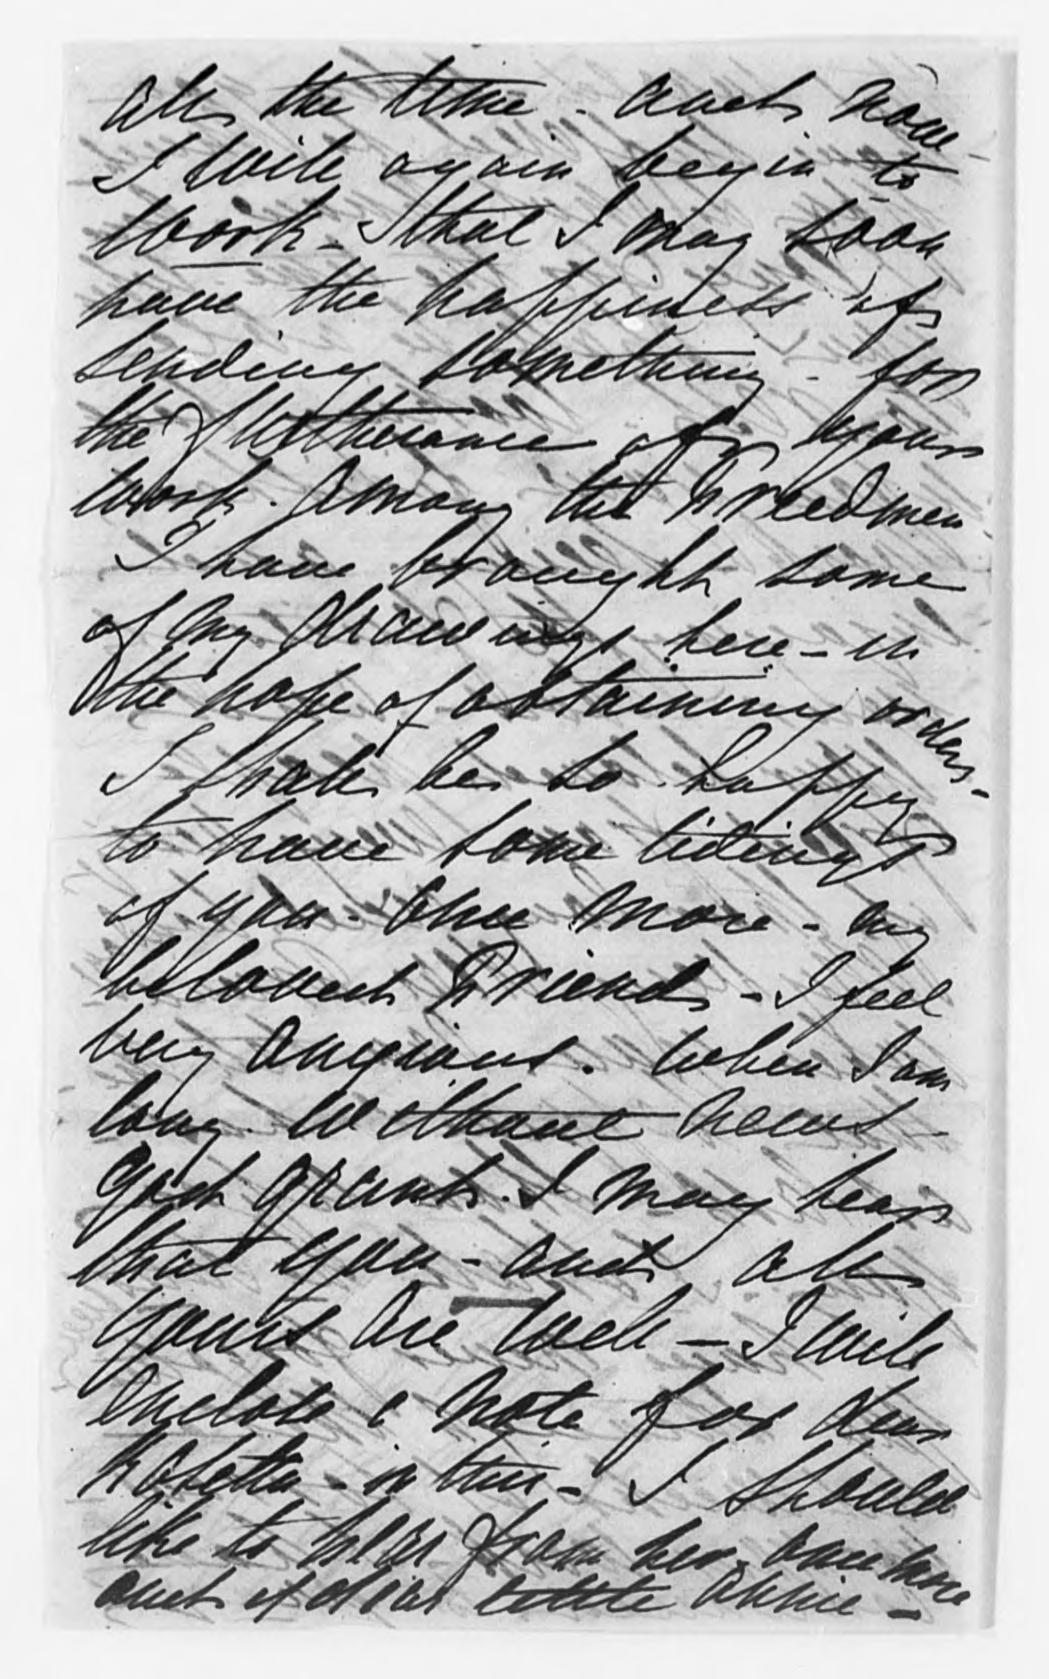 all the time - and now
I will again begin to
work - that I may soon
have the happiness of
sending something - for
the furtherance of your
work. among the Freedmen
I have brought some
of my drawings here - in
the hope of obtaining orders -
I shall be so happy
to have some tidings
of you - once more - my
beloved Friends - I feel
very anxious. when I am
long without news -
God grant. I may hear
that you - and all
yours are well - I will
enclose a note for dear
Rosetta - in this - I should
like to hear from her once more
and of dear little Annie -